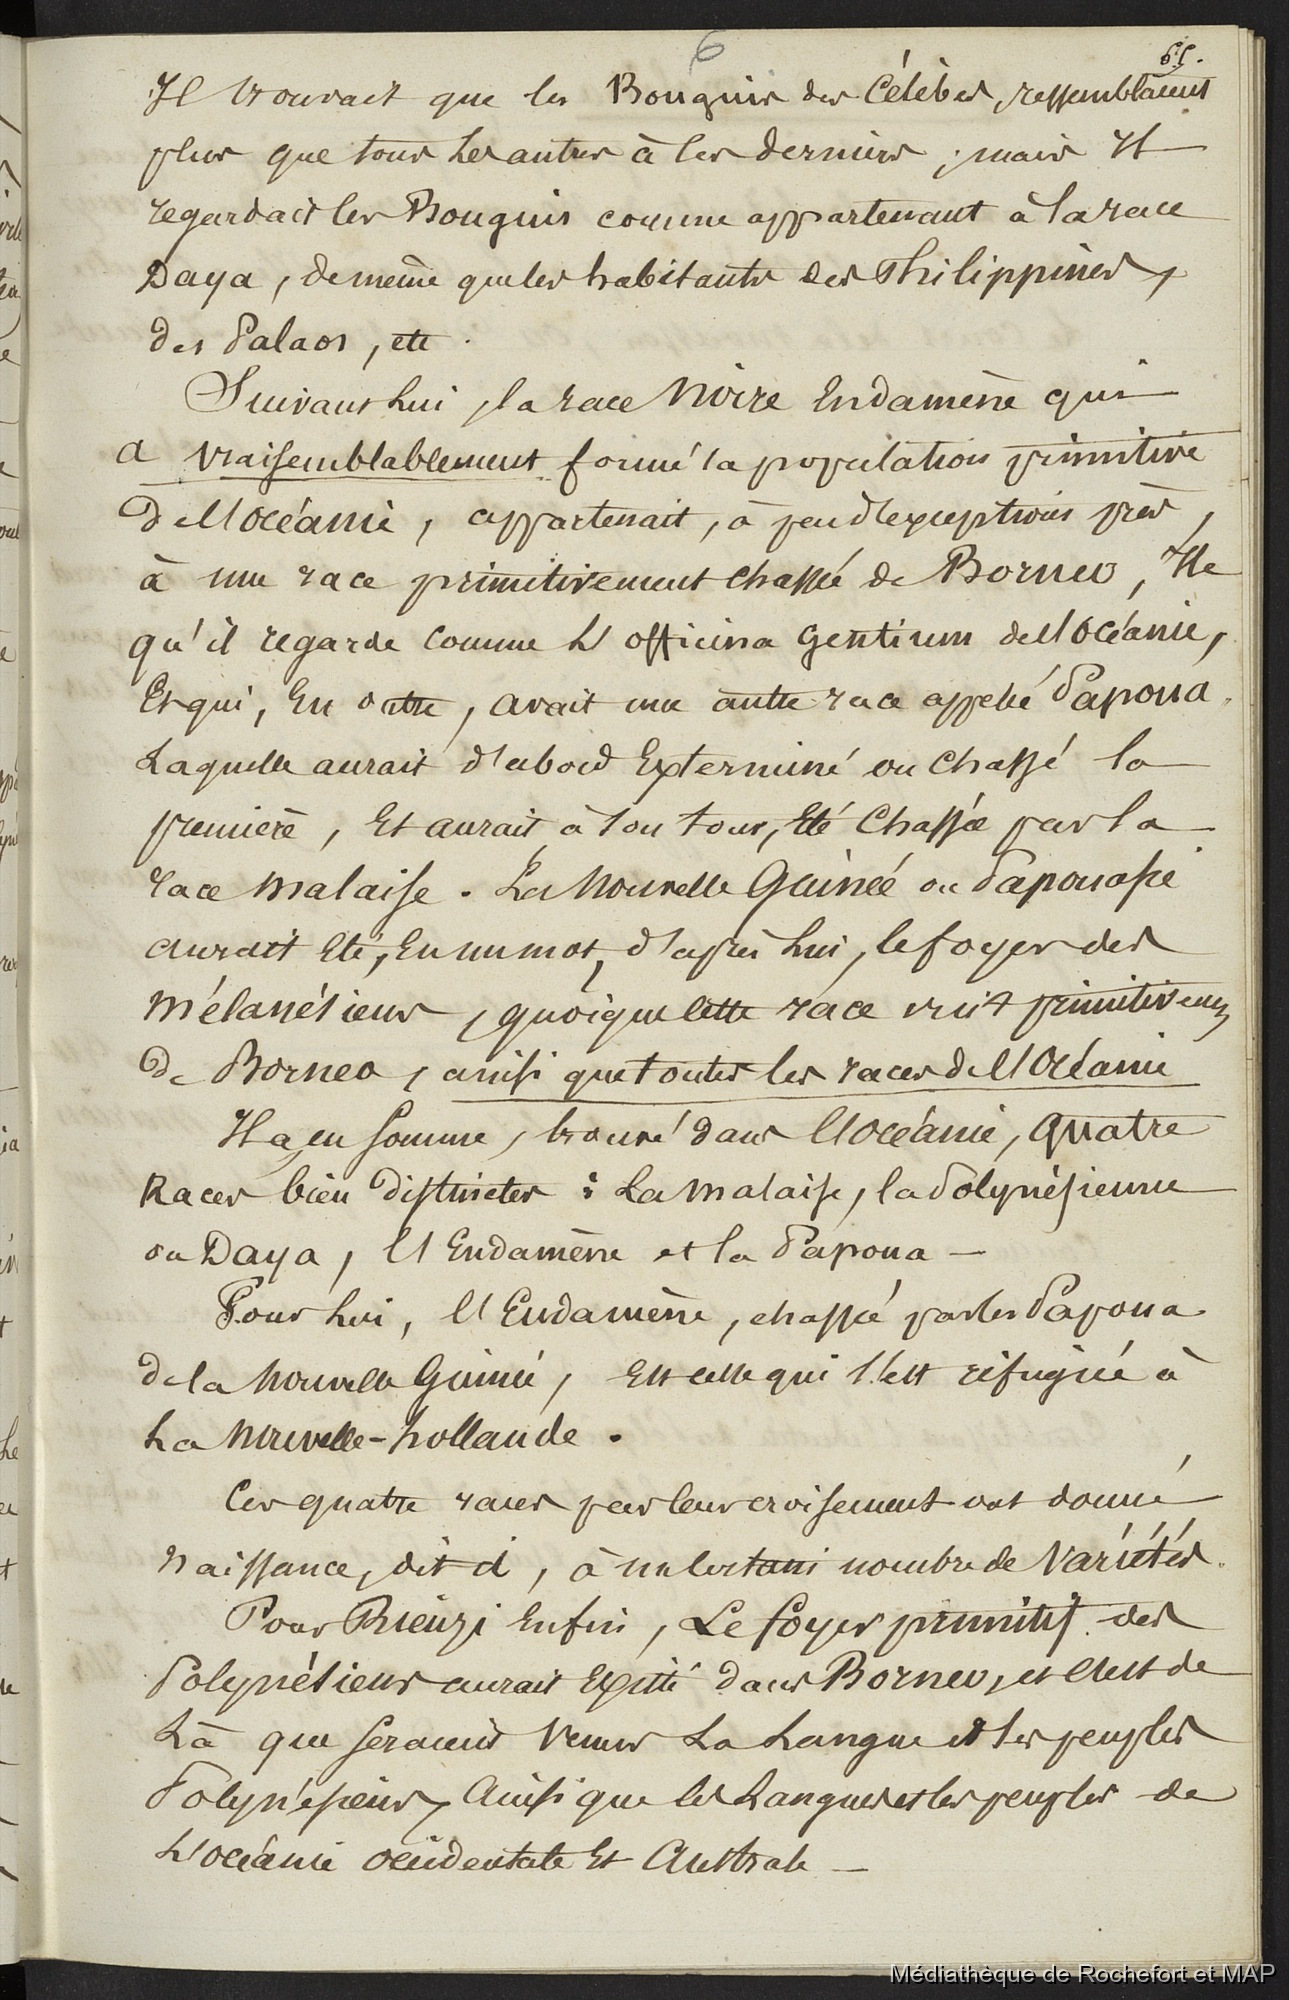 6
65.
Il trouvait que les Bouguis des Célèbes, ressemblaient
plus que tous les autres à ces derniers ; mais Il
regardait les Bouguis comme appartenant à la race
Daya, de même que les habitants des Philippines,
des Palaos, etc.
Suivant lui, la race Noire Endamène qui
a vraisemblablement formé la population primitive
de l'océanie, appartenait, à peu d'exceptions près,
à une race primitivement chassée de Borneo, Ile
qu'il regarde comme L'officina gentium de l'océanie,
Et qui, En outre, avait une autre race appelée Papoua.
Laquelle aurait d'abord Exterminé ou chassé la
première, Et aurait à son tour, Eté Chassée par la
race malaise. La Nouvelle Guinée ou Papouasie
aurait Eté, En un mot, d'après Lui, le foyer des
Mélanésiens, quoique cette race vint primitivem.
de Borneo, ainsi que toutes les races de l'Océanie
Il a, en somme, trouvé dans l'océanie, quatre
Races bien distinctes : La malaise, la Polynésienne
ou Daya, l'Endamène et la Papoua —
Pour lui, l'Endamène, chassée par les Papoua
de la Nouvelle Guinée, Est celle qui s'est réfugiée à
La Nouvelle-hollande.
Ces quatre races par leur croisement ont donné
naissance, dit-il, à un certain nombre de Variétés.
Pour Rienzi Enfin, Le foyer primitif des
Polynésiens aurait Existé dans Borneo, et c'est de
Là que seraient Venus La Langue et les peuples
Polynésiens, Ainsi que les Langues et les peuples de
L'océanie occidentale Et Australe —
Médiathèque de Rochefort et MAP